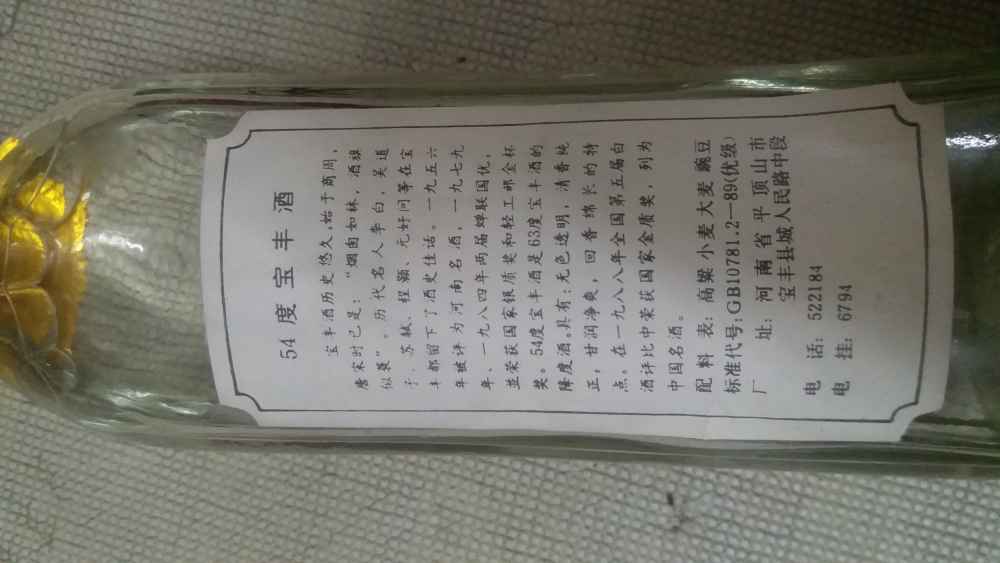 54 度宝丰酒
宝丰酒历史悠久,始于商周,
唐宋时已是:“烟囱如林,酒旗
似蓑”。历代名人李白,吴道
子、苏轼、程颢、元好问等在宝
丰都留下了酒史佳话。一九五六
年被评为河南名酒,一九七九
年、一九八四年两届蝉联国优,
并荣获国家银质奖和轻工部金杯
奖。54度宝丰酒是63度宝丰酒的
降度酒。具有:无色透明,清香纯
正,甘润净爽,回香绵长的特
点。在一九八八年全国第五届白
酒评比中荣获国家金质奖,列为
中国名酒。
配料表:高粱小麦大麦豌豆
标准代号:GB10781.2—89(优级)
厂址:河南省平顶山市
宝丰县城人民路中段
电话:522184
电挂:6794